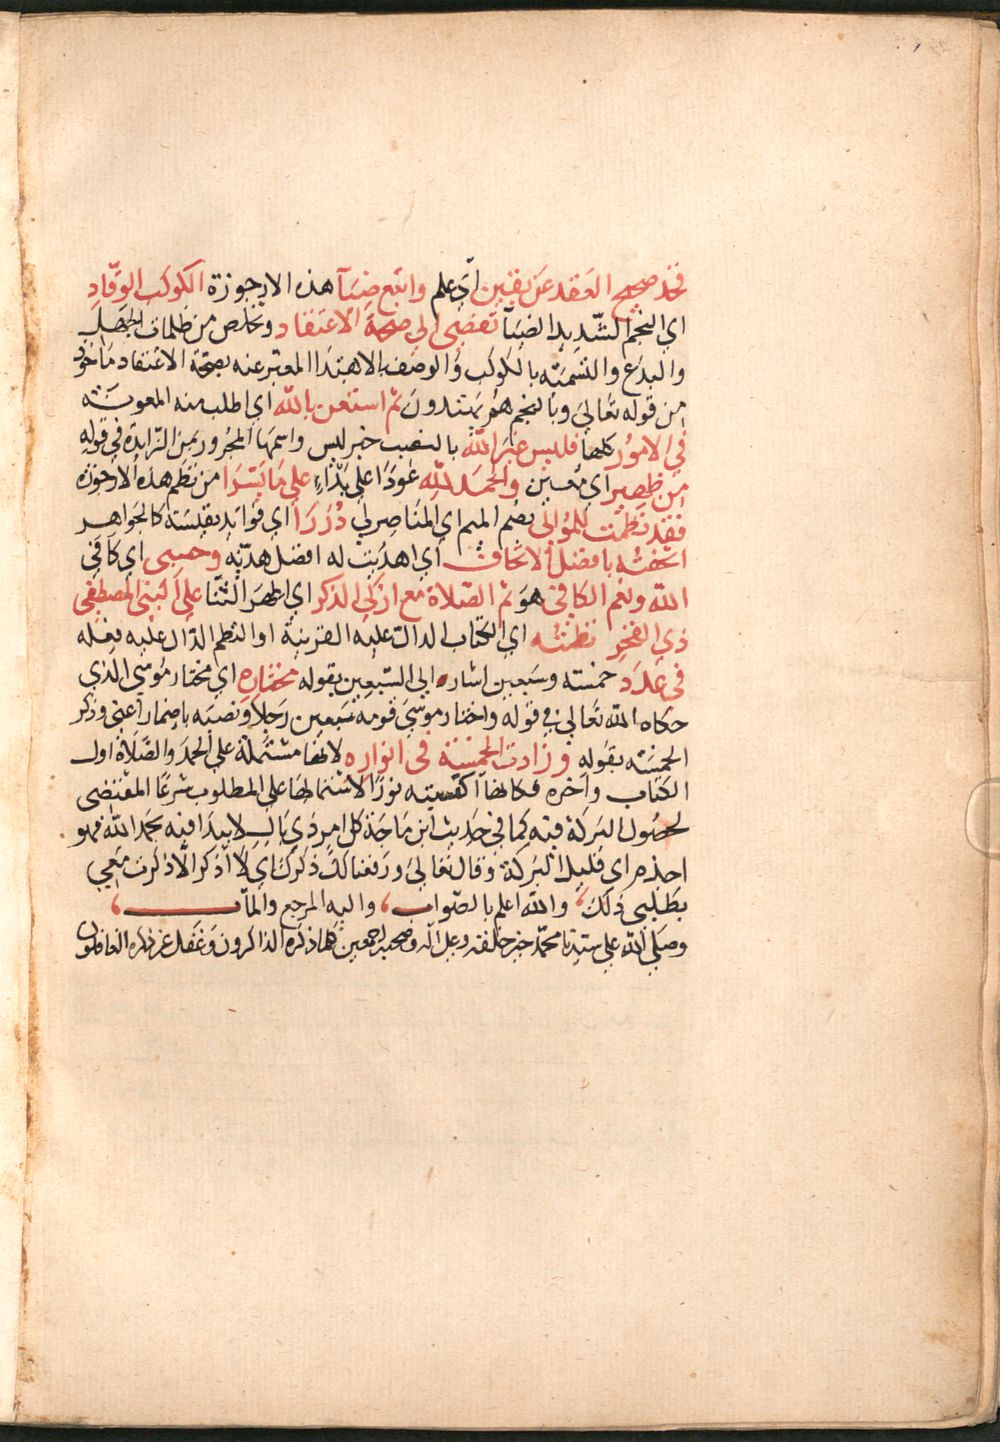 فخذ صحيح العقد عن يقين أي علم واتبع ضيآ هذه الارجوزة الكوكب الوقاد
اي النجم الشديد الضيآ تفضى الي صحة الاعتقاد وتخلص من ظلمات الجهل
والبدع والتسمية بالكوكب والوصف بالاهتدا المعبر عنه بصحة الاعتقاد ماخوذ
من قوله تعالي وبالنجم هم يهتدون ثم استعن بالله اي اطلب منه المعونة
في الامور كلها فليس غير الله بالنصب خبر ليس واسمها المجرور بمن الزايدة في قوله
من ظهير اي معين والحمد لله عودا على بدء على ما يسرا من نظم هذه الارجوزة
فقد نظمت للموالى بضم الميم اي المناصر لي دررا اي فوايد نفيسة كالجواهر
اتحفته بافضل الاتحاف اي اهديت له افضل هدية وحسبى اي كافى
الله ونعم الكافى هو ثم الصلاة مع ازكى الذكر اي اطهر الثنا على النبي المصطفى
ذي الفخر نظمته اي الكتاب الدالت عليه القرينة او النظم الدال عليه فعله
في عدد خمسة وسبعين اشار الى السبعين بقوله مختاره اي مختار موسي الذي
حكاه الله تعالي في قوله واختار موسي قومه سبعين رجلا ونصبه باضمار اعني وذكر
الخمسة بقوله وزادت الخمسة في انواره لانها مشتملة علي الحمد والصلاة اول
الكتاب واخره فكانها اكسبته نورا لاشتمالها على المطلوب شرعا المقتضى
لحصول البركة فيه كما في حديث ابن ماجة كل امر ذي بال لا يبدا فيه بحمد الله فهو
اجذم اي قليل البركة وقال تعالي ورفعنا لك ذكرك اي لا اذكر الا ذكرت معي
بطلبي ذلك والله اعلم بالصواب واليه المرجع والمآب
وصلي الله علي سيدنا محمد خير خلقه وعلى اله وصحبه اجمعين كلما ذكره الذاكرون وغفل عن ذكره الغافلون